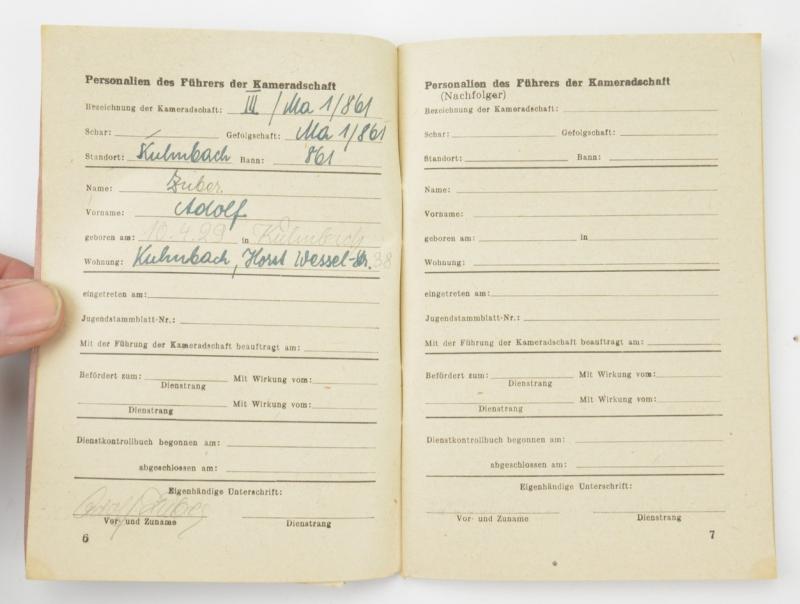 Personalien des Führers der Kameradschaft
Bezeichnung der Kameradschaft: III / Ma 1/861
Schar: Gefolgschaft: Ma 1/861
Standort: Kulmbach Bann: 861
Name: Zuber
Vorname: Adolf
geboren am: 10.4.29 in Kulmbach
Wohnung: Kulmbach, Horst Wessel-Str. 38
eingetreten am:
Jugendstammblatt-Nr.:
Mit der Führung der Kameradschaft beauftragt am:
Befördert zum: Mit Wirkung vom:
Dienstrang
Mit Wirkung vom:
Dienstrang
Dienstkontrollbuch begonnen am:
abgeschlossen am:
Eigenhändige Unterschrift:
Adolf Zuber
Vor- und Zuname Dienstrang
6
Personalien des Führers der Kameradschaft
(Nachfolger)
Bezeichnung der Kameradschaft:
Schar: Gefolgschaft:
Standort: Bann:
Name:
Vorname:
geboren am: in
Wohnung:
eingetreten am:
Jugendstammblatt-Nr.:
Mit der Führung der Kameradschaft beauftragt am:
Befördert zum: Mit Wirkung vom:
Dienstrang
Mit Wirkung vom:
Dienstrang
Dienstkontrollbuch begonnen am:
abgeschlossen am:
Eigenhändige Unterschrift:
Vor- und Zuname Dienstrang
7